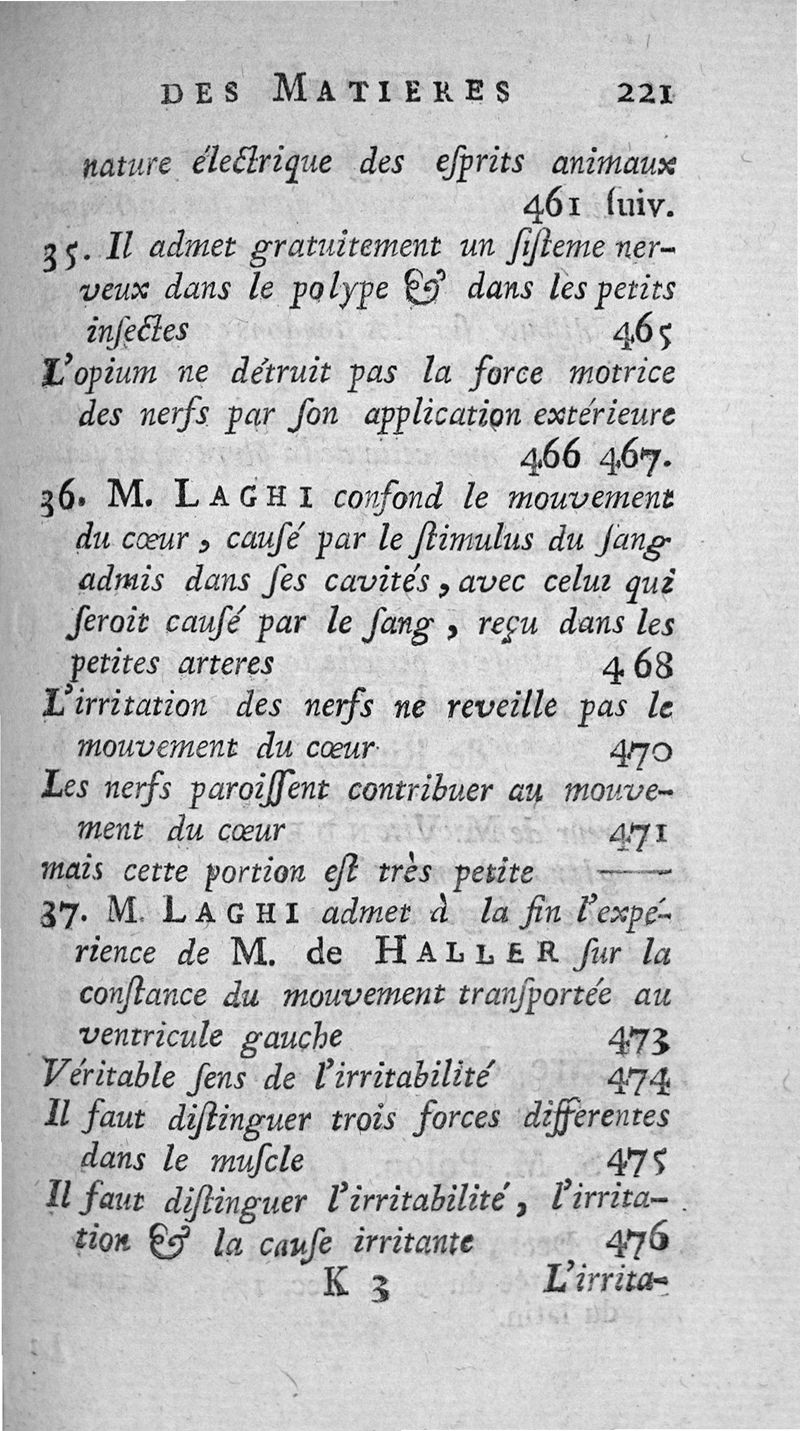 DES MATIERES 221
nature électrique des eſprits animaux
461 ſuiv.
35. Il admet gratuitement un ſiſteme ner-
veux dans le polype & dans les petits
inſectes 465
L'opium ne détruit pas la force motrice
des nerfs par ſon application extérieure
466 467.
36. M. LAGHI confond le mouvement
du cœur, cauſé par le ſtimulus du ſang
admis dans ſes cavités, avec celui qui
ſeroit cauſé par le ſang, reçu dans les
petites arteres 468
L'irritation des nerfs ne reveille pas le
mouvement du cœur 470
Les nerfs paroiſſent contribuer au mouve-
ment du cœur 471
mais cette portion eſt très petite ——
37. M. LAGHI admet à la fin l'expé-
rience de M. de HALLER ſur la
conſtance du mouvement tranſportée au
ventricule gauche 473
Véritable ſens de l'irritabilité 474
Il faut diſtinguer trois forces differentes
dans le muſcle 475
Il faut diſtinguer l'irritabilité, l'irrita-
tion & la cauſe irritante 476
K 3 L'irrita-